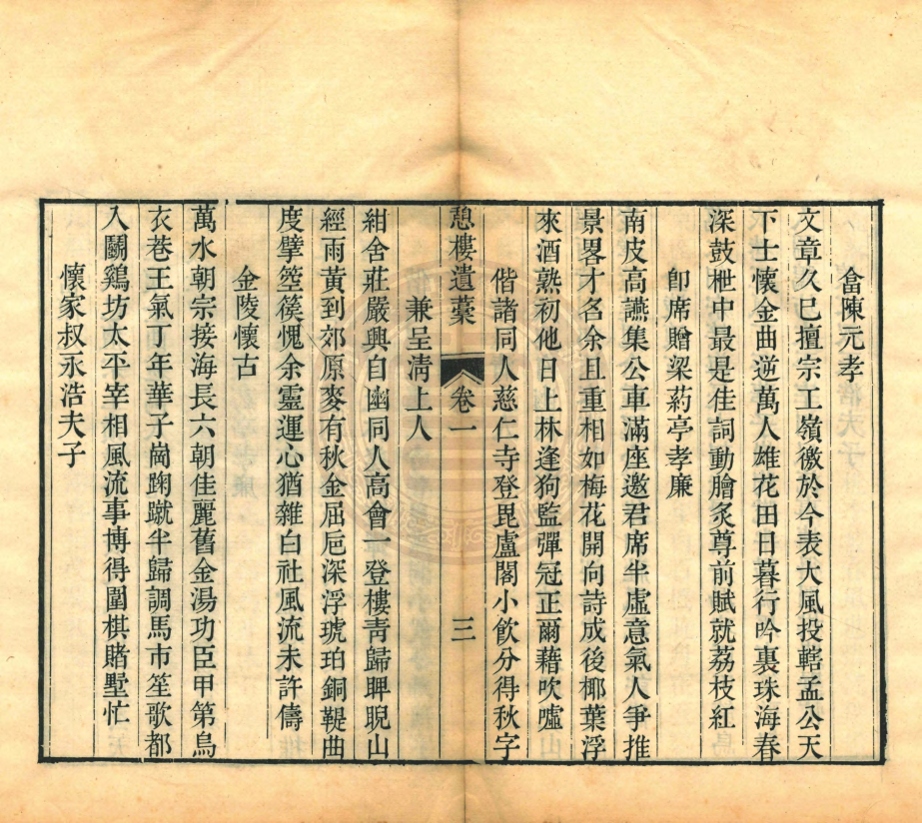 畣陳元孝
文章久已擅宗工嶺徼於今表大風投轄孟公天
下士懷金曲逆萬人雄花田日暮行吟裏珠海春
深鼓枻中最是佳詞動膾炙尊前賦就荔枝紅
卽席贈梁葯亭孝廉
南皮高讌集公車滿座邀君席半虛意氣人爭推
景畧才名余且重相如梅花開向詩成後椰葉浮
來酒熟初他日上林逢狗監彈冠正爾藉吹噓
偕諸同人慈仁寺登毘盧閣小飲分得秋字
憩樓遺藁 卷一 三
兼呈淸上人
紺舍莊嚴興自幽同人高會一登樓靑歸睥睨山
經雨黃到郊原麥有秋金屈卮深浮琥珀銅鞮曲
度擘箜篌愧余靈運心猶雜白社風流未許儔
金陵懷古
萬水朝宗接海長六朝佳麗舊金湯功臣甲第烏
衣巷王氣丁年華子崗踘蹴半歸調馬市笙歌都
入鬭鷄坊太平宰相風流事博得圍棋賭墅忙
懷家叔永浩夫子